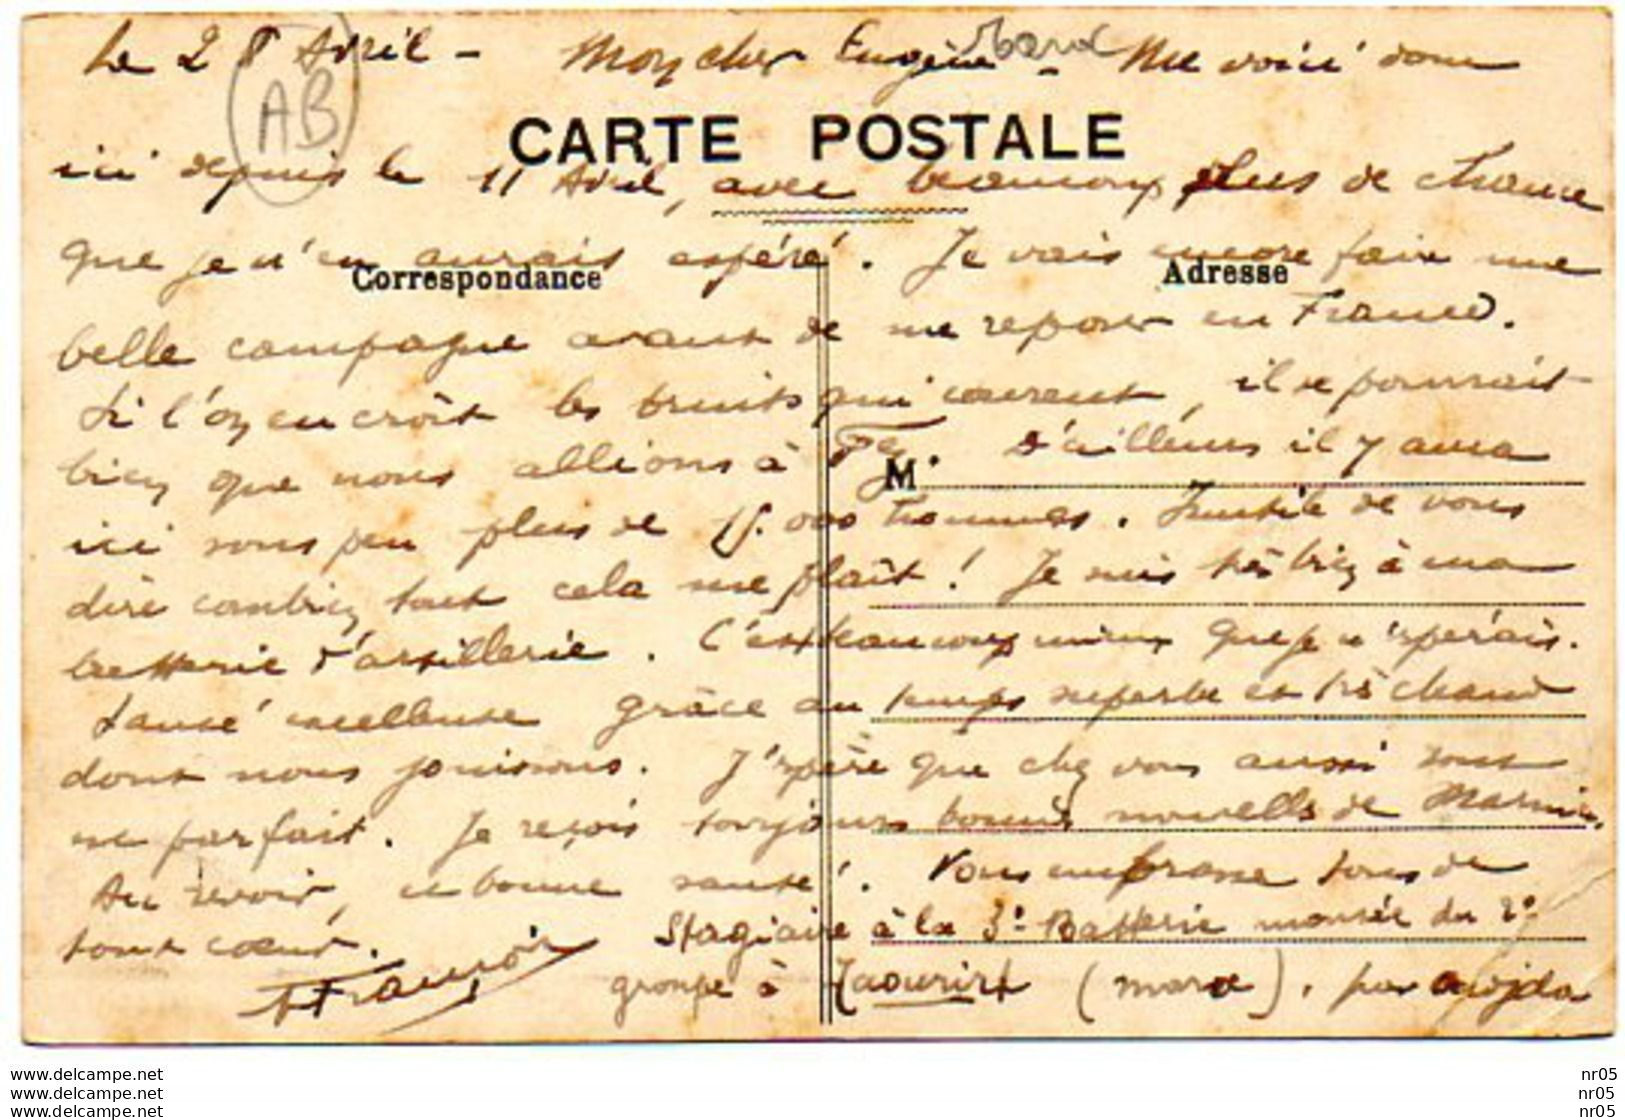 Le 28 Avril - Mon cher Eugène - Me voici donc
AB
CARTE POSTALE
ici depuis le 11 Avril, avec beaucoup plus de chance
que je n'en aurais espéré. Je vais encore faire une
Correspondance Adresse
belle campagne avant de me reposer en France.
Si l'on en croit les bruits qui courent, il se pourrait
bien que nous allions à Fez D'ailleurs il y aura
M.
ici sous peu plus de 15.000 hommes. Inutile de vous
dire combien tout cela me plaît! Je suis très bien à ma
batterie d'artillerie. C'est beaucoup mieux que je n'espérais.
Santé excellente grâce au temps superbe et très chaud
dont nous jouissons. J'espère que chez vous aussi tout
est parfait. Je reçois toujours bonnes nouvelles de
Au revoir, et bonne santé. Vous embrasse tous de
tout cœur.
François
Stagiaire à la 3e Batterie montée du 2e
groupe à Taourirt (Maroc), par Oujda
www.delcampe.net nr05
www.delcampe.net nr05
www.delcampe.net nr05